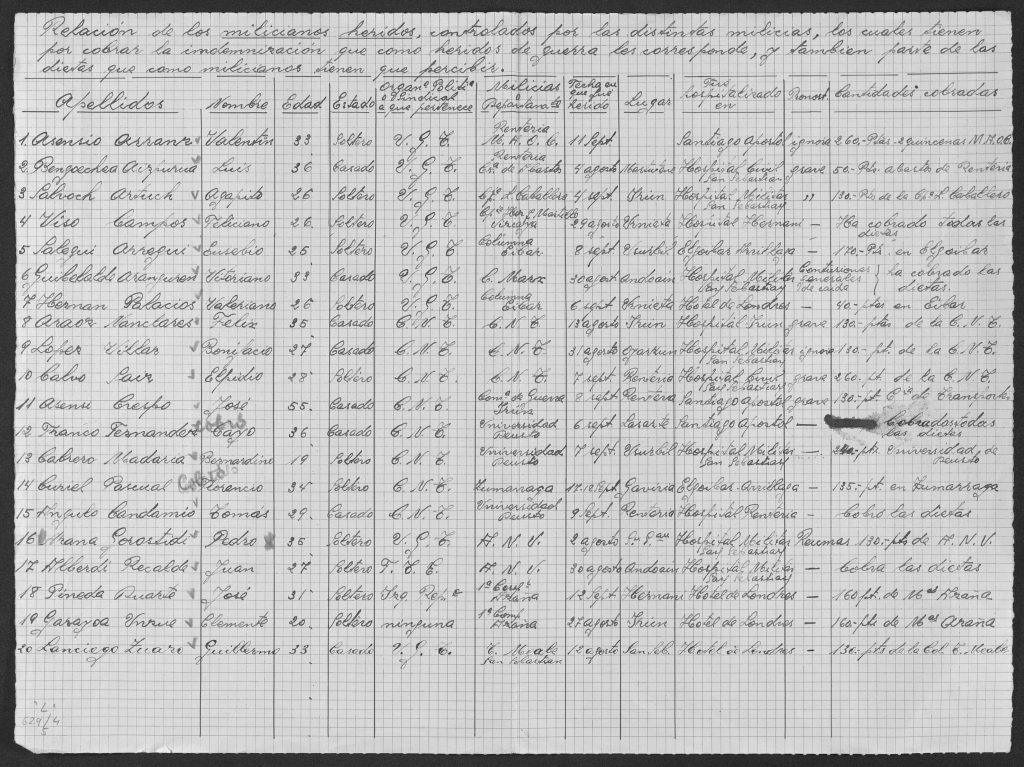 Relación de los milicianos heridos, controlados por las distintas milicias, los cuales tienen
por cobrar la indemnización que como heridos de guerra les corresponde, y tambien parte de las
dietas que como milicianos tienen que percibir.
Apellidos Nombre Edad Estado Organ. Polit. o Sindical a que pertenece Milicias o Departamento Fecha en que fué herido Lugar Fué hospitalizado en Pronost. Cantidades cobradas
1. Asensio Arranz Valentín 33 Soltero U. G. T. Renteria M.A.O.C. 11 Sept. Santiago Apostol ignora 260.- Ptas. 2 quincenas M.A.O.C.
2. Bengoechea Aizpurua Luis 36 Casado U. G. T. Renteria 4 agosto Hospital Civil San Sebastian grave 50.- Pts. abastos de Renteria
3 Agapito 26 Soltero U. G. T. Cª L. Caballero 4 sept. Irun Hospital Militar San Sebastian " 130.- Pts de la Cª L. Caballero
4 Viso Campos Feliciano 26. Soltero U. G. T. 29 agosto Urnieta Hospital Hernani — Ha cobrado todas las dietas
5 Salegui Arregui Eusebio 25 Soltero U. G. T. Columna Eibar 8 sept. Usurbil Elgoibar — 170.- Pts. en Elgoibar
6 Victoriano 33 Casado U. G. T. C. Marx 30 agost Andoain Hospital Militar San Sebastian Contusiones ha cobrado las dietas.
7 Hernan Palacios Valeriano 26 Soltero U. G. T. Columna Eibar 6 sept Urnieta Hotel de Londres — 40.- ptas en Eibar
8 Araoz Nanclares Felix 35 Casado C. N. T. C. N. T. 13 agosto Irun Hospital Irun grave 130.- ptas. de la C. N. T.
9 Lopez Villar Bonifacio 27 Casado C. N. T. C. N. T. 31 agosto Oyarzun Hospital Militar San Sebastian ignora 130.- pt. de la C. N. T.
10 Calvo Saiz Elpidio 28 Soltero C. N. T. C. N. T. 7 sept. Renteria Hospital Civil San Sebastian grave 260.- pt. de la C. N. T.
11 Asensi Crespo José 55. Casado C. N. T. Com. de Guerra Irun 8 sept. Renteria Santiago Apostol grave 130.- pt. Cª de Transporte
12 Franco Fernandez Cayo 36 Casado C. N. T. Universidad Deusto 6 sept. Lasarte Santiago Apostol — Cobradas todas las dietas
cobró
13 Cabrero Madaria Bernardino 19 Soltero C. N. T. Universidad Deusto 7 sept. Usurbil Hospital Militar San Sebastian — ptas. Universidad de Deusto
14 Curiel Pascual Florencio 34 Soltero C. N. T. Zumarraga Sept. Gaviria Elgoibar — 135.- pt. en Zumarraga
15 Angulo Candamio Tomás 29. Casado C. N. T. Universidad Deusto 9 Sept. Renteria Hospital Renteria — Cobro las dietas
16 Arana Gorostidi Pedro 35 Soltero U. G. T. A. N. V. 2 agosto Hospital Militar San Sebastian Reumas 130.- pts de A. N. V.
17 Alberdi Recalde Juan 27 Soltero A. N. V. 30 agosto Andoain Hospital Militar San Sebastian — Cobra las dietas
18 Pineda Duarte José 31 Soltero Izq. Repª 1ª Comp. Azaña 12 Sept. Hernani Hotel de Londres — 160 pt. de Mas Azaña
19 Garayoa Unrue Clemente 20. Soltero ninguna 1ª Comp. Azaña 27 agosto Irun Hotel de Londres — 160.- pts de Mas Azaña
20 Lanciego Guillermo 33 Casado U. G. T. San Sebastian 12 agosto San Seb. Hotel de Londres — 130.- pts de la Col.
L.
629/4
5